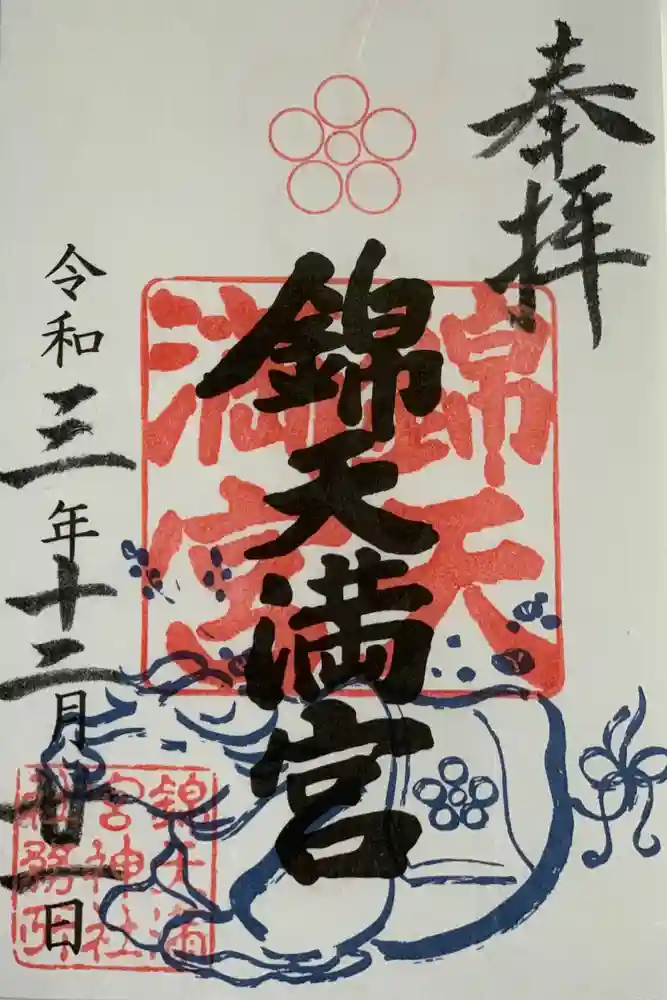 奉拝
錦天満宮
錦天満宮
令和三年十二月廿一日
錦天満
宮神社
社務所